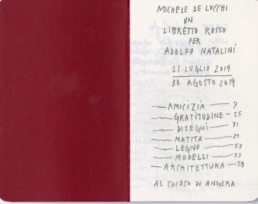 MICHELE DE LUCCHI
UN
LIBRETTO ROSSO
PER
ADOLFO NATALINI
21 LUGLIO 2019
30 AGOSTO 2019
AMICIZIA
GRATITUDINE
DISEGNI
MATITA
LEGNO
MODELLI
ARCHITETTURA
AL CHIOSO DI ANGERA